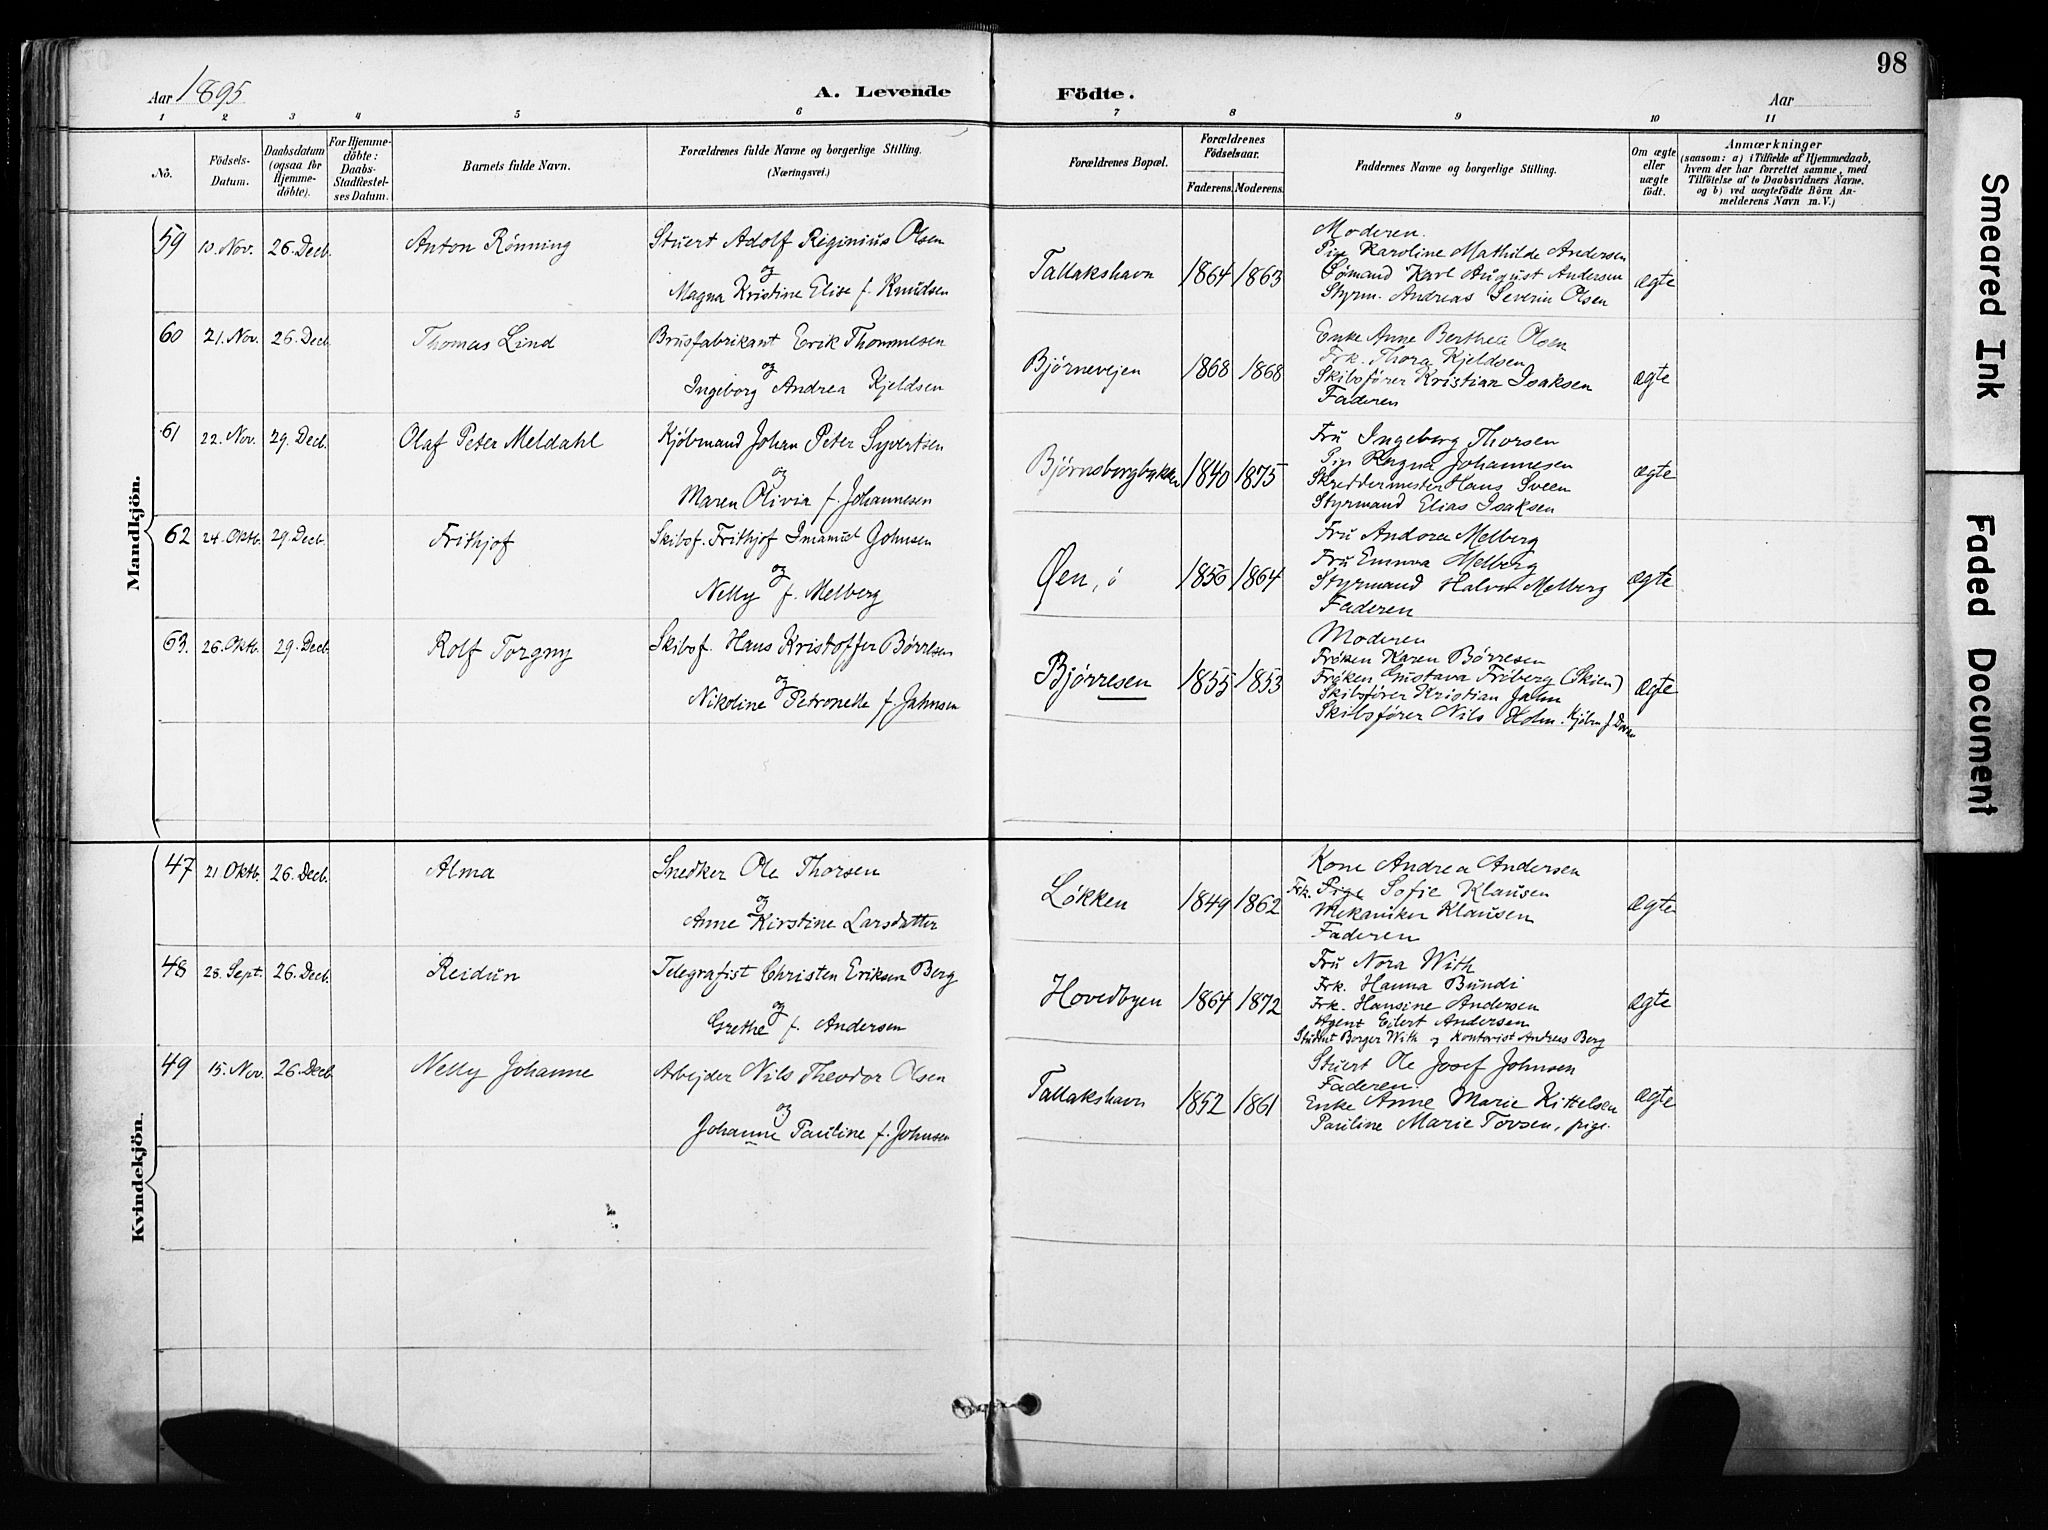 98
Aar 1895
A. Levende Födte.
Aar
1 2 3 4 5 6 7 8 9 10 11
Nö.
Födsels-Datum.
Daabsdatum (ogsaa för Hjemme-döbte).
For Hjemme-döbte: Daabs-Stadfæstel-ses Datum.
Barnets fulde Navn.
Forældrenes fulde Navne og borgerlige Stilling.
(Næringsvei.)
Forældrenes Bopæl.
Forældrenes Födselsaar.
Faderens. Moderens.
Faddernes Navne og borgerlige Stilling.
Om ægte eller uægte födt.
Anmærkninger
(saasom: a) i Tilfælde af Hjemmedaab,
hvem der har forrettet samme, med
Tilföielse af to Daabsvidners Navne,
og b) ved uægtefödte Börn An-
melderens Navn m. V.)
Mandkjön.
59 10. Nov. 26. Decb. Anton Rönning Stuert Adolf Reginius Olsen
og
Magna Kristine Elise f. Knudsen
Tallakshavn 1864 1863
Moderen.
Pige Karoline Mathilde Andersen
Sømand Karl August Andersen
Styrm. Andreas Severin Olsen
ægte
60 21. Nov. 26. Decb. Thomas Lind Brusfabrikant Erik Thommesen
og
Ingeborg Andrea Kjeldsen
Bjørnevejen 1868 1868
Enke Anne Berthea Olsen
Frk. Thora Kjeldsen
Skibsfører Kristian Isaksen
Faderen
ægte
61 22. Nov. 29. Decb. Olaf Peter Meldahl Kjøbmand Johan Peter Syvertsen
og
Maren Olivia f. Johannesen
Bjørnsborgbakken 1840 1875
Fru Ingeborg Thorsen
Pige Ragna Johannesen
Skreddermester Hans Sveen
Styrmand Elias Isaksen
ægte
62 24. Oktb. 29. Decb. Frithjof Skibsf. Frithjof Imanuel Johnsen
og
Nelly f. Melberg
Øen, 1856 1864
Fru Andora Melberg
Fru Emma Melberg
Styrmand Halvor Melberg
Faderen
ægte
63. 26. Oktb. 29. Decb. Rolf Torgny Skibsf. Hans Kristoffer Børresen
og
Nikoline Petronelle f. Jahnsen
Bjørresen 1855 1853
Moderen
Frøken Karen Børresen
Frøken Gustava Friberg (Skien)
Skibsfører Kristian Jahn
Skibsfører Nils Holm. Kjøbm J.
ægte
Kvindekjön.
47 21. Oktb. 26. Decb. Alma Snedker Ole Thorsen
og
Anne Kirstine Larsdatter
Løkken 1849 1862
Kone Andrea Andersen
Frk. Pige Sofie Klausen
Mekaniker Klausen
Faderen
ægte
48 28. Sept. 26. Decb. Reidun Telegrafist Christen Eriksen Berg
og
Grethe f. Andersen
Hovedbyen 1864 1872
Fru Nora With
Frk. Hanna Bundi
Frk. Hansine Andersen
Agent Eilert Andersen
Student Borger With og Kontorist Andreas Berg
ægte
49 15. Nov. 26. Decb. Nelly Johanne Arbejder Nils Theodor Olsen
og
Johanne Pauline f. Johnsen
Tallakshavn 1852 1861
Stuert Ole Josef Johnsen
Faderen.
Enke Anne Marie Kittelsen
Pauline Marie Tovsen, pige.
ægte
Smeared Ink
Faded Document